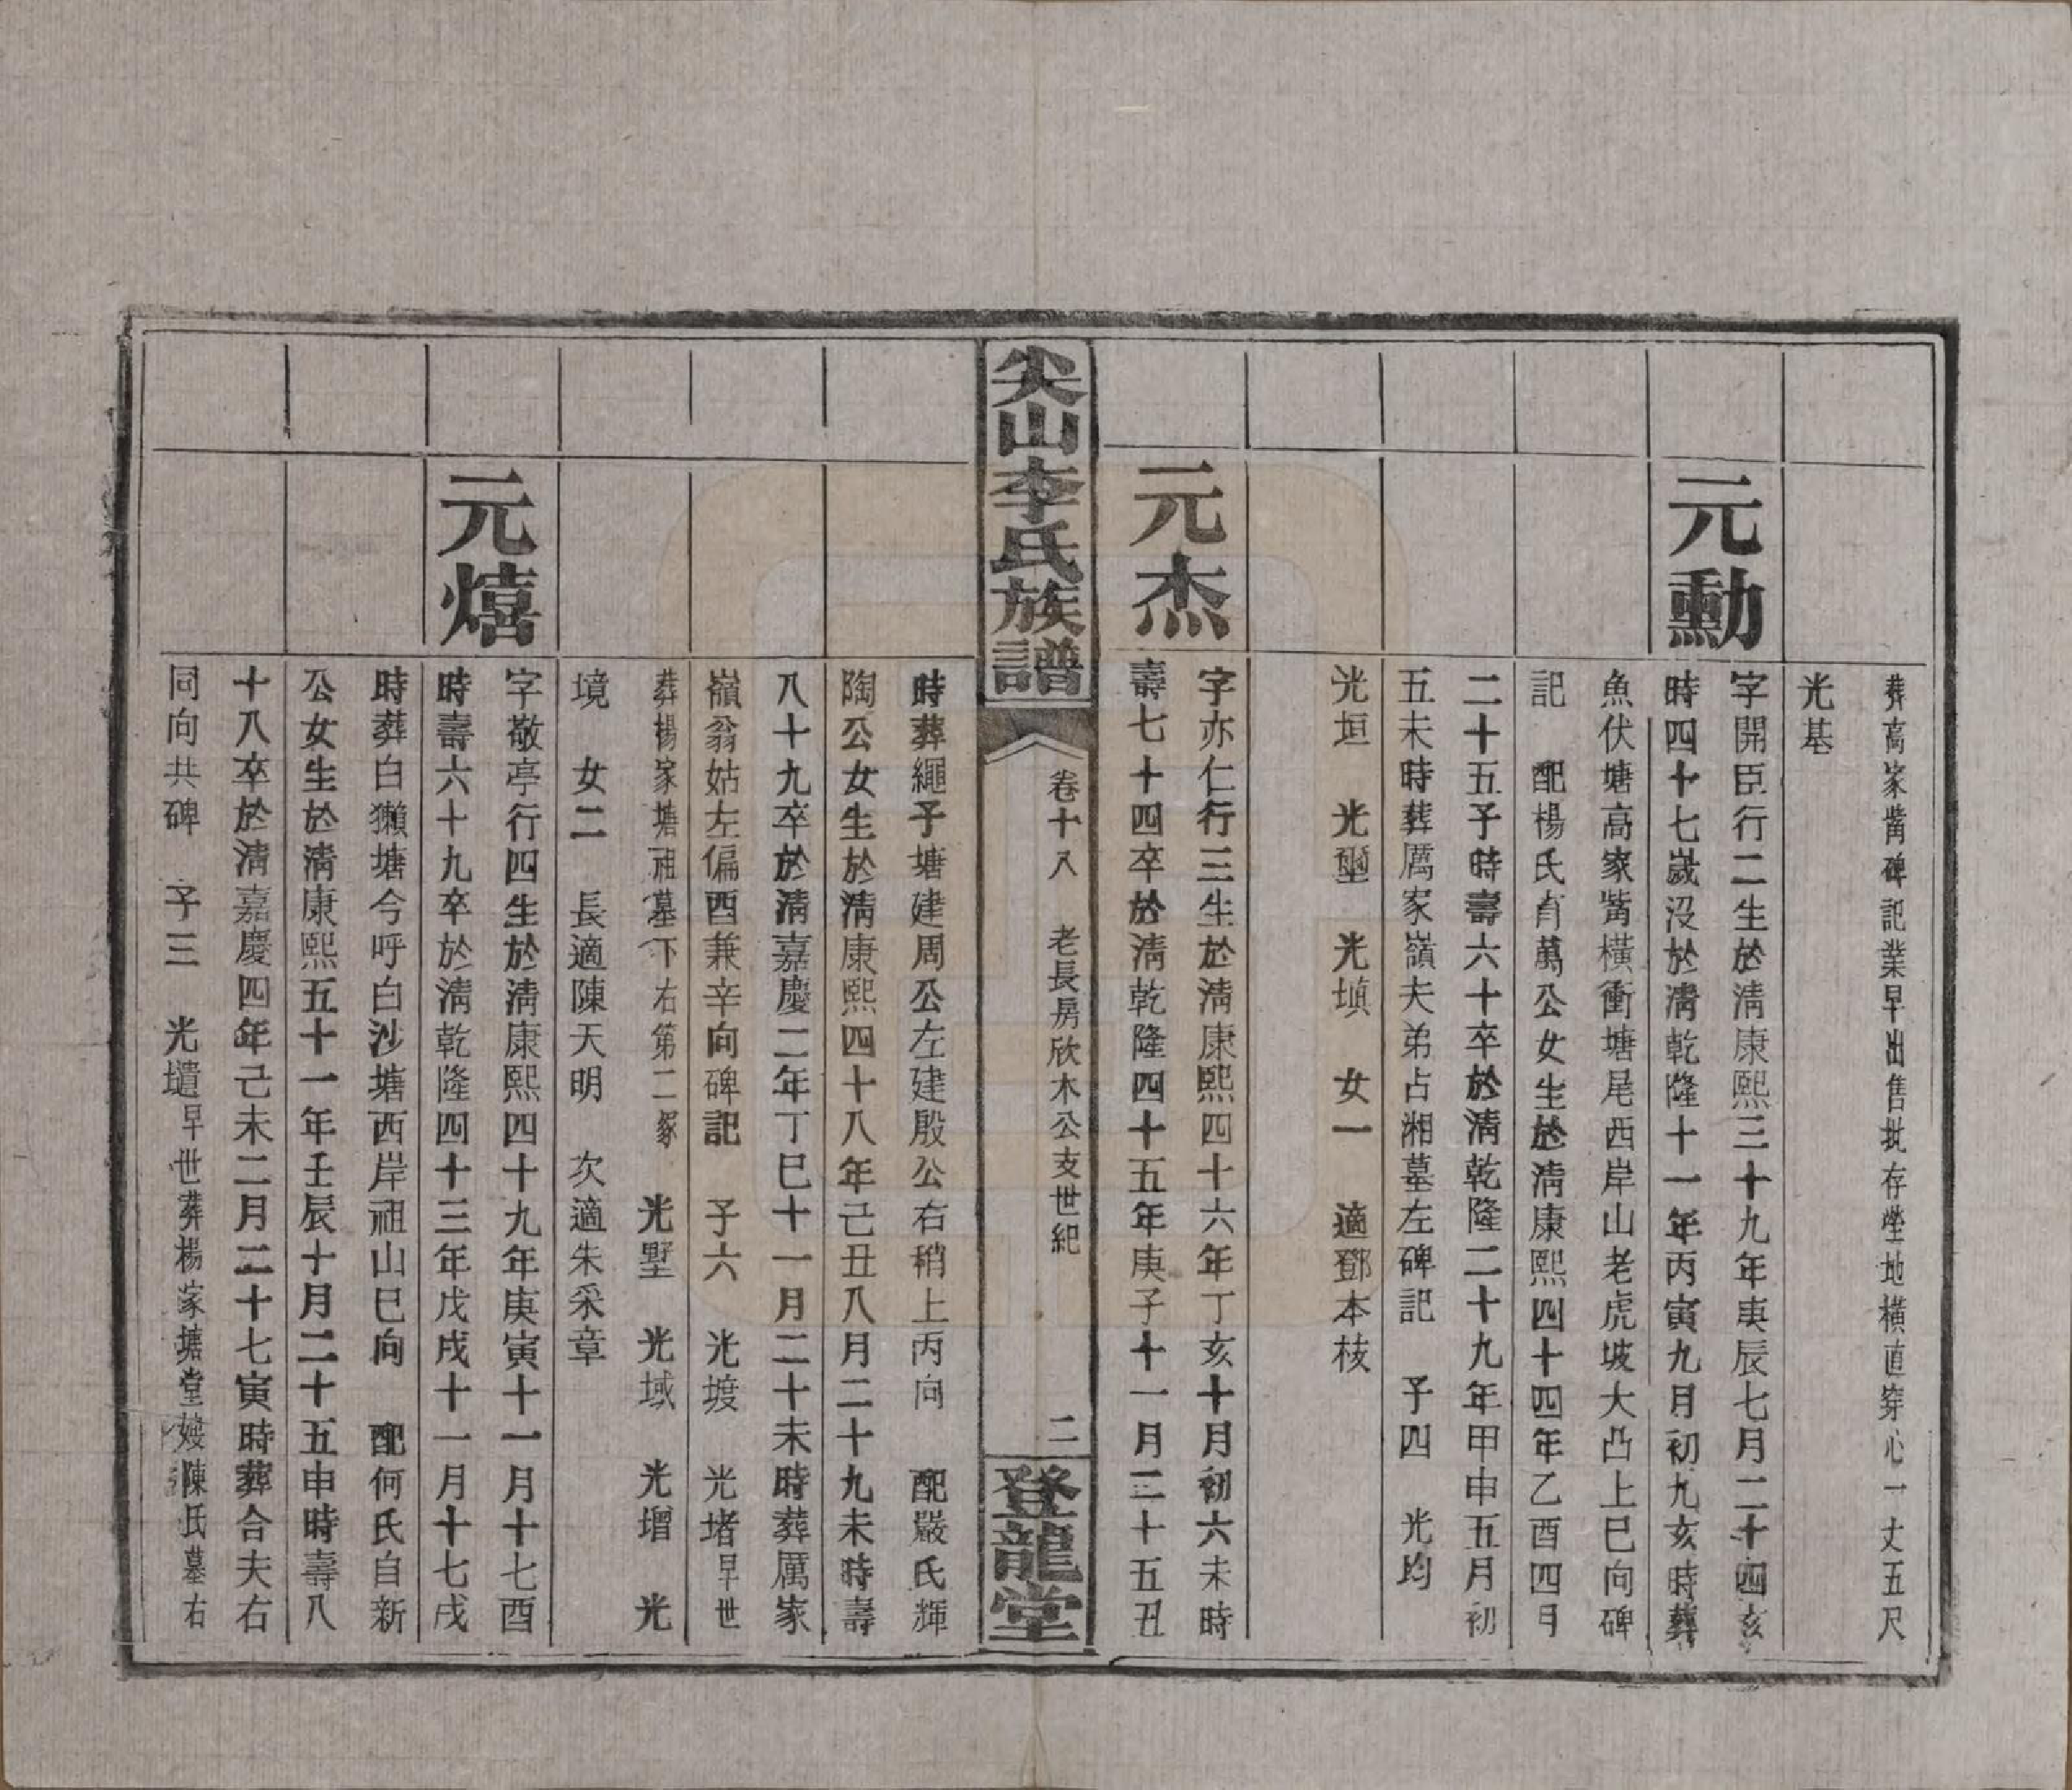 葬高家觜碑記業早出售批存塋地橫直穿心一丈五尺
光基
元勳
字開臣行二生於淸康熙三十九年庚辰七月二十四亥
時四十七歲沒於淸乾隆十一年丙寅九月初九亥時葬
魚伏塘高家觜橫衝塘尾西岸山老虎坡大凸上巳向碑
記 配楊氏貞萬公女生於淸康熙四十四年乙酉四月
二十五子時壽六十卒於淸乾隆二十九年甲申五月初
五未時葬厲家嶺夫弟占湘墓左碑記 子四 光均
光垣 光壐 光塡 女一 適鄧本枝
元杰
字亦仁行三生於淸康熙四十六年丁亥十月初六未時
壽七十四卒於淸乾隆四十五年庚子十一月二十五丑
尖山李氏族譜
卷十八 老長房欣木公支世紀
二
登龍堂
時葬繩子塘建周公左建殷公右稍上丙向 配嚴氏輝
陶公女生於淸康熙四十八年己丑八月二十九未時壽
八十九卒於淸嘉慶二年丁巳十一月二十未時葬厲家
嶺翁姑左偏酉兼辛向碑記 子六 光坡 光堵早世
葬楊家塘祖墓下右第二冢 光墅 光域 光增 光
境 女二 長適陳天明 次適朱采章
元熺
字敬亭行四生於淸康熙四十九年庚寅十一月十七酉
時壽六十九卒於淸乾隆四十三年戊戌十一月十七戌
時葬白獺塘今呼白沙塘西岸祖山巳向 配何氏自新
公女生於淸康熙五十一年壬辰十月二十五申時壽八
十八卒於淸嘉慶四年己未二月二十七寅時葬合夫右
同向共碑 子三 光壝早世葬楊家塘堂嫂陳氏墓右